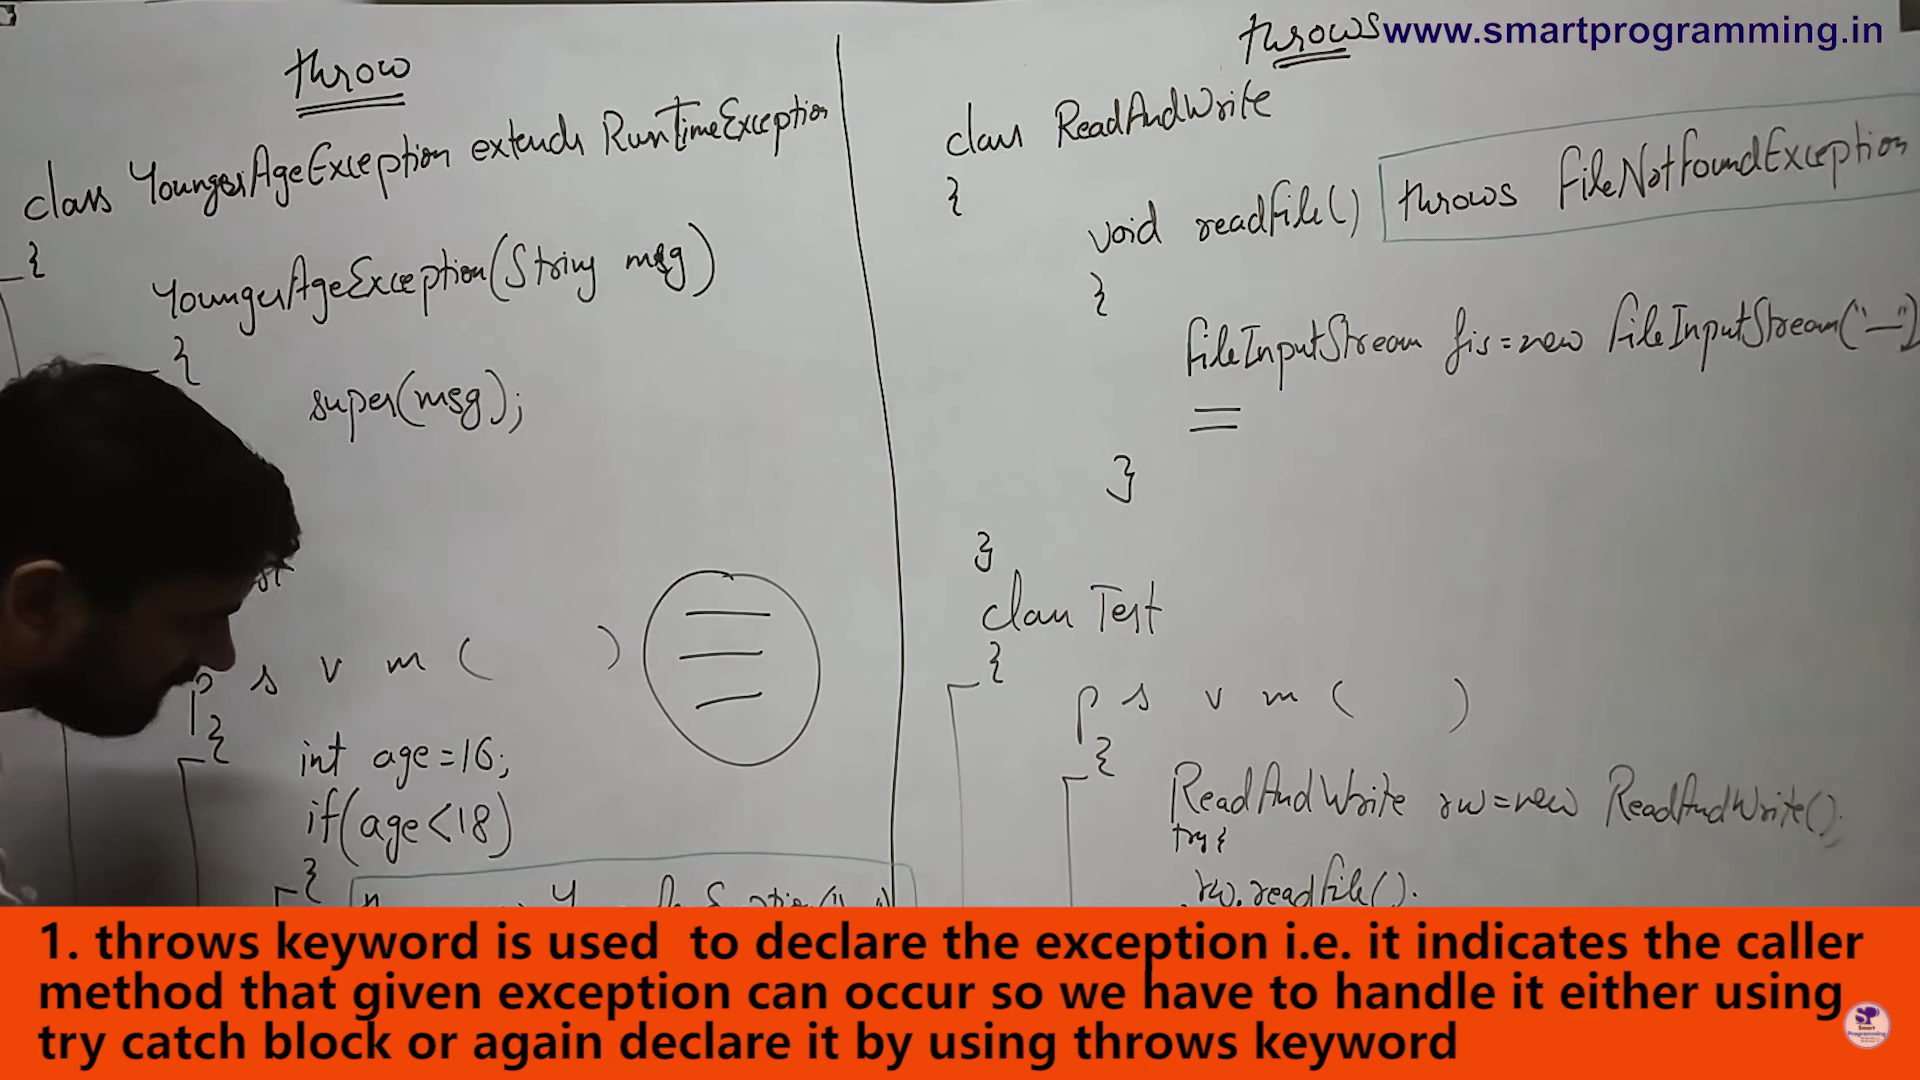 throw
class YoungerAgeException extends RunTimeException
{
YoungerAgeException(String msg)
{
super(msg);
p s v m ( )
{
int age=16;
if(age<18)
{
throws
www.smartprogramming.in
class ReadAndWrite
{
void readFile() throws FileNotFoundException
{
FileInputStream fis=new FileInputStream("—")
}
}
class Test
{
p s v m ( )
{
ReadAndWrite rw=new ReadAndWrite();
try{
rw.readFile();
1. throws keyword is used to declare the exception i.e. it indicates the caller
method that given exception can occur so we have to handle it either using
try catch block or again declare it by using throws keyword
SP
Smart
Programming